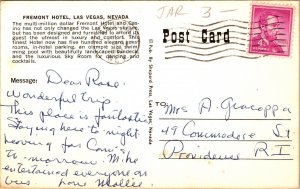 FREMONT HOTEL, LAS VEGAS, NEVADA
The multi-million dollar Fremont Hotel and Casino has not only changed the Las Vegas skyline, but has been designed and furnished to afford its guest the utmost in luxury and comfort. This finest Hotel now has five hundred elegant guest rooms, in-hotel parking, an olympic size swimming pool with beautifully landscaped gardens, and the luxurious Sky Room for dancing and cocktails.
JAR 3
Post Card
Message:
Dear Rose,
Wonderful trip
This place is fantastic
Staying here to night
leaving for
to morrow. Mike
entertained everyone on
bus. Love Mollie
TO:
Mrs A.
49 Commodore St
Providence
R I